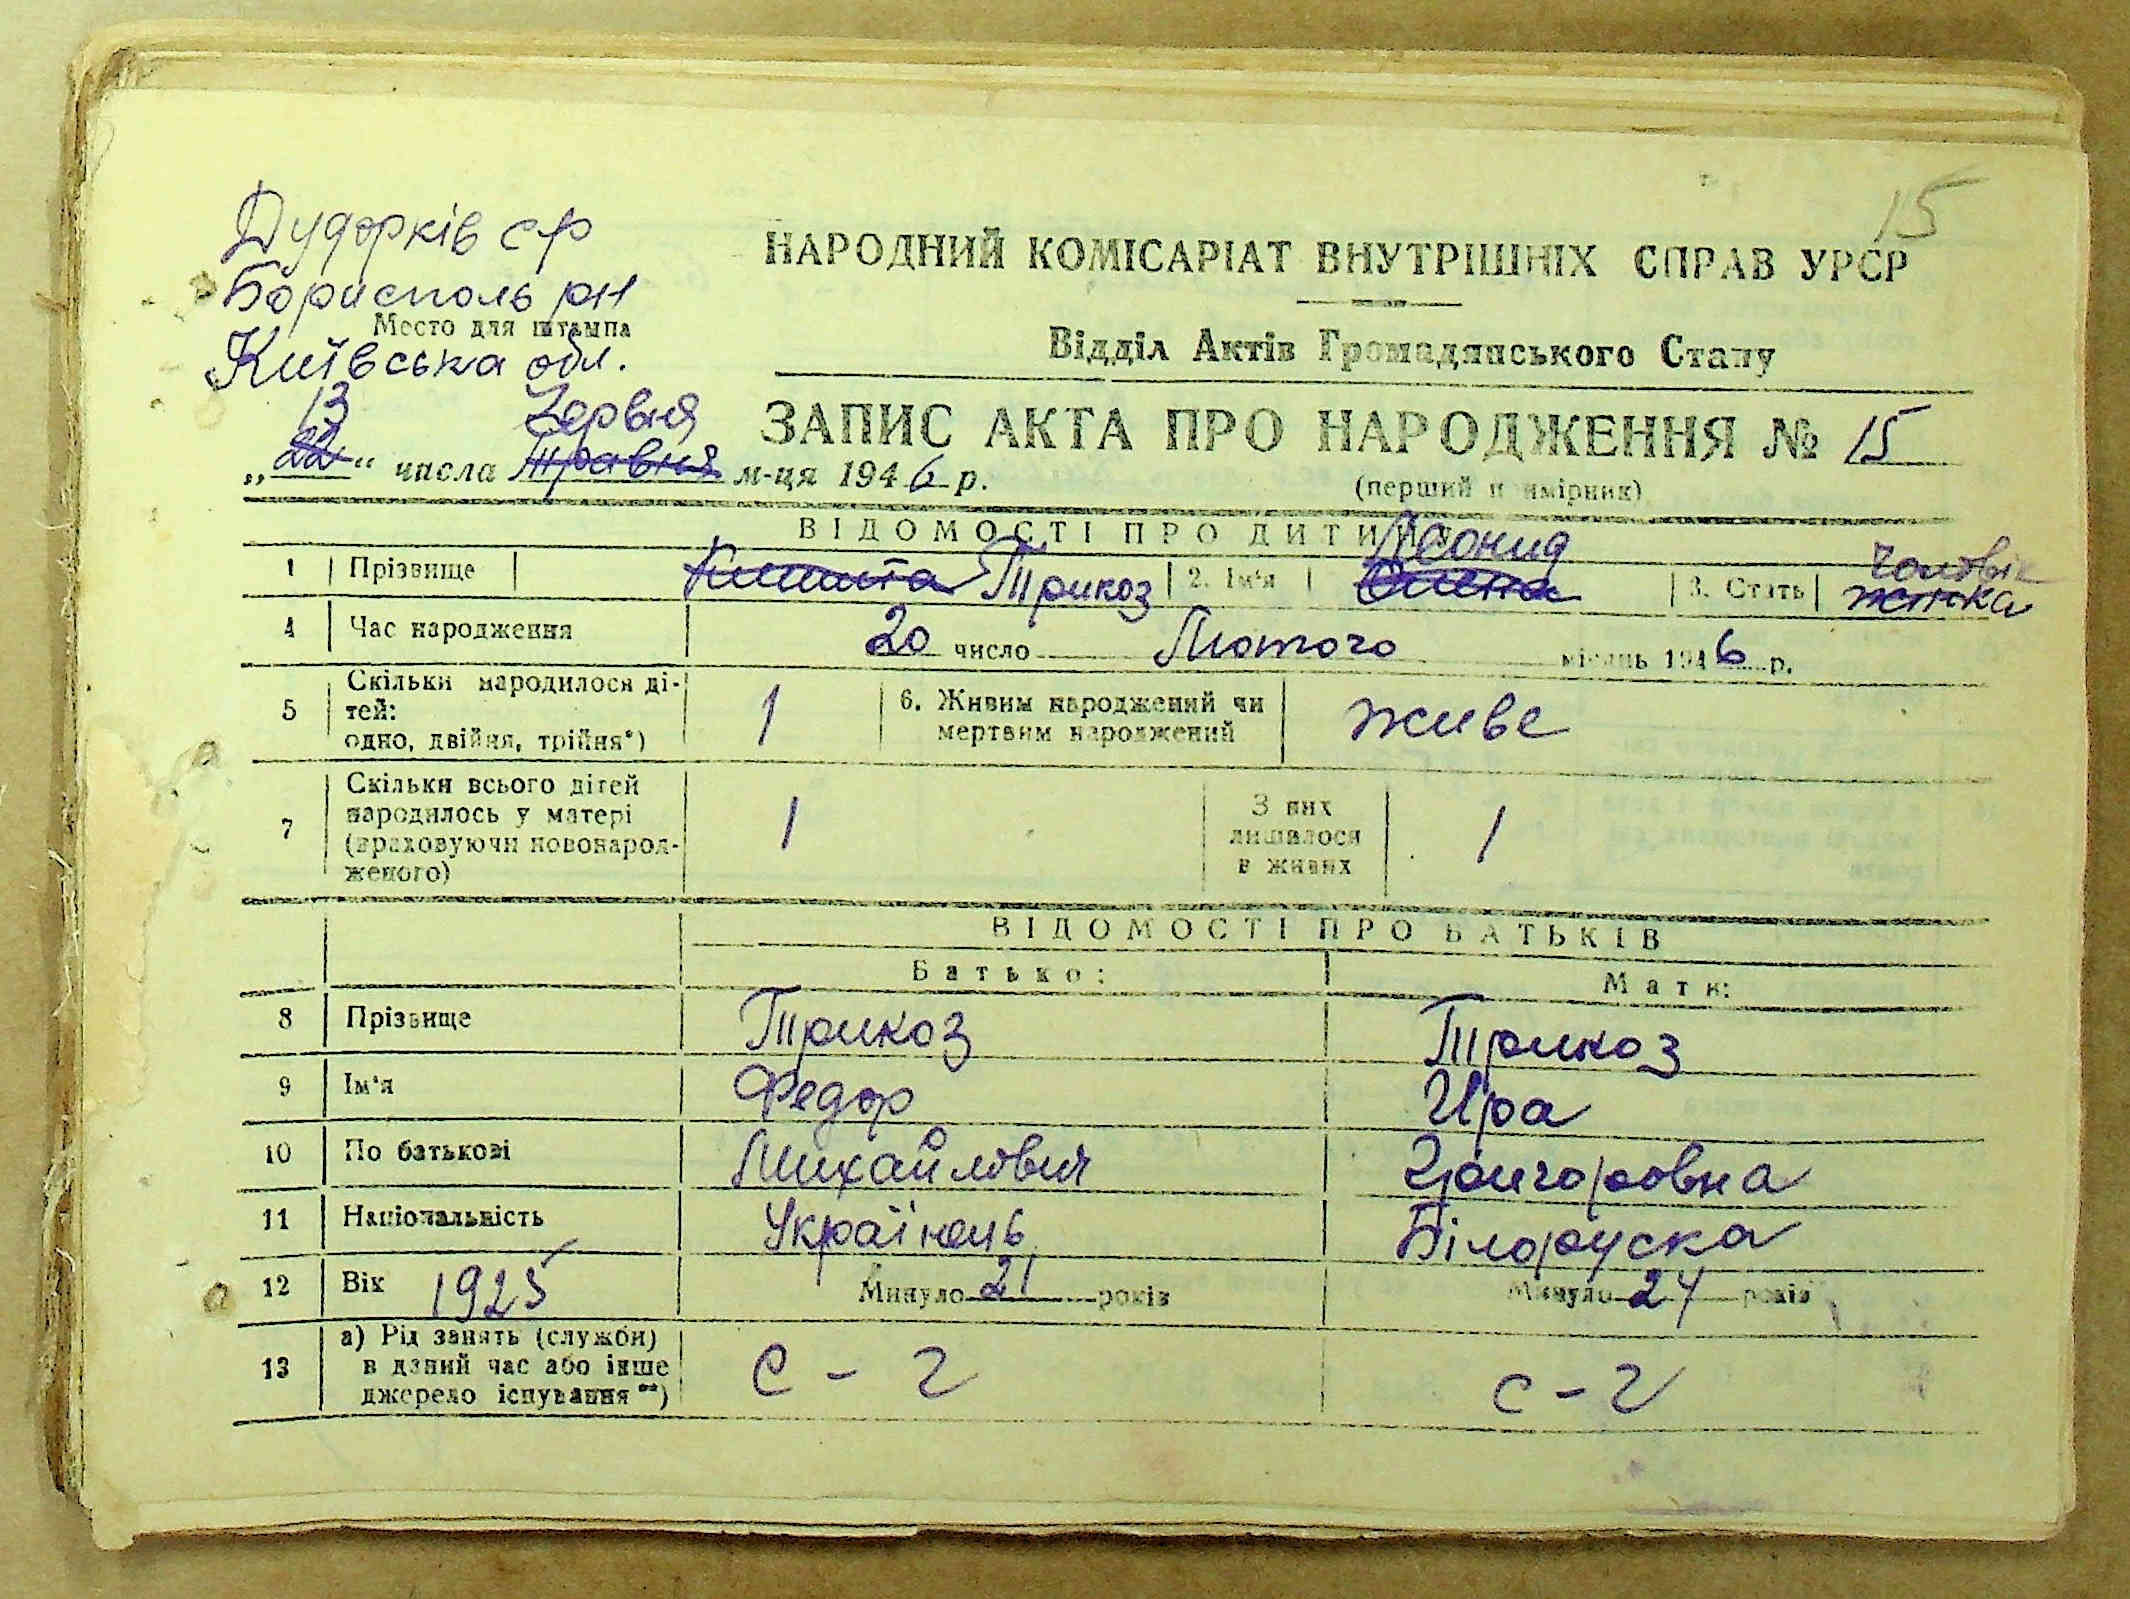 15
Дударків с/р
Бориспсль рн
Место для штампа
Київська обл.
НАРОДНИЙ КОМІСАРІАТ ВНУТРІШНІХ СПРАВ УРСР
Відділ Актів Громадянського Стану
13 Червня
„22“ числа Травня м-ця 1946 р.
ЗАПИС АКТА ПРО НАРОДЖЕННЯ № 15
(перший примірник)
ВІДОМОСТІ ПРО ДИТИНУ
1 Прізвище Трикоз 2. Ім'я Леонид 3. Стать Чоловік жінка
4 Час народження 20 число Лютого місяць 1946 р.
5 Скільки народилося ді-
тей:
одно, двійня, трійня*) 1 6. Живим народжений чи
мертвим народжений живе
7 Скільки всього дітей
народилось у матері
(враховуючи новонарод-
женого) 1 З них
лишалося
в живих 1
ВІДОМОСТІ ПРО БАТЬКІВ
Батько: Мати:
8 Прізвище Трикоз Трикоз
9 Ім'я Федор Ира
10 По батькові Михайлович Григоровна
11 Національність Українець Білоруска
12 Вік 1925 Минуло 21 років Минуло 24 років
13 а) Рід занять (служби)
в даний час або інше
джерело існування**) с-г с-г